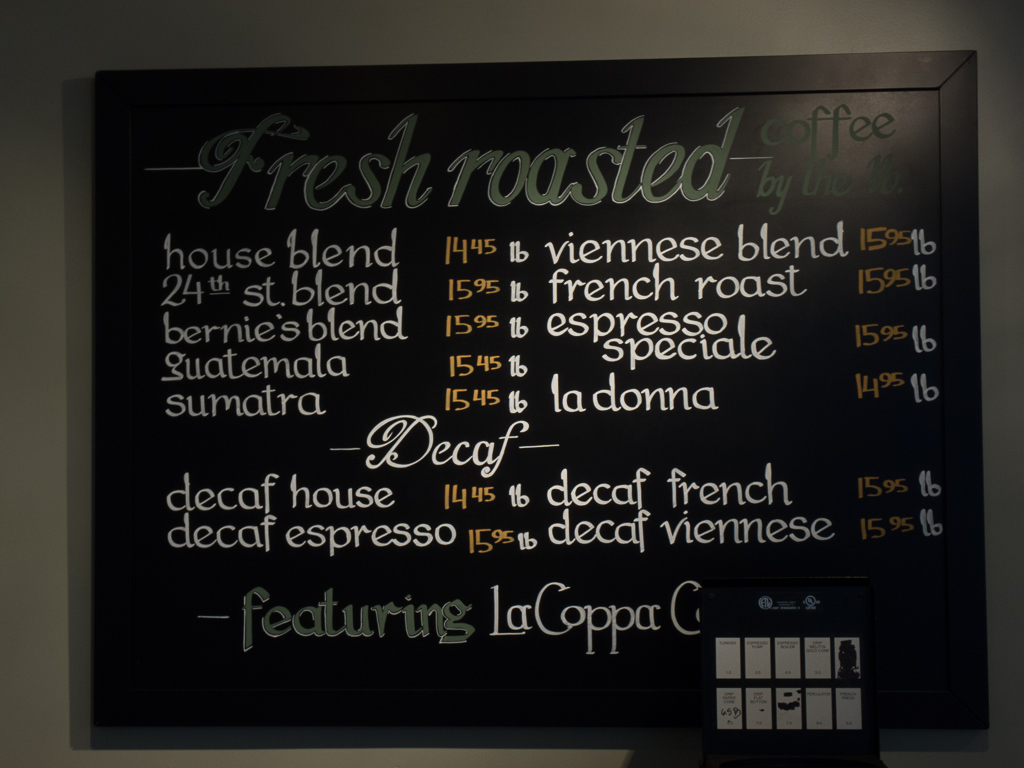 Fresh roasted coffee
by the lb.
house blend 14 45 lb
24th st. blend 15 95 lb
bernie's blend 15 95 lb
guatemala 15 45 lb
sumatra 15 45 lb
viennese blend 15 95 lb
french roast 15 95 lb
espresso
speciale 15 95 lb
la donna 14 95 lb
- Decaf -
decaf house 14 45 lb
decaf espresso 15 95 lb
decaf french 15 95 lb
decaf viennese 15 95 lb
- featuring LaCoppa